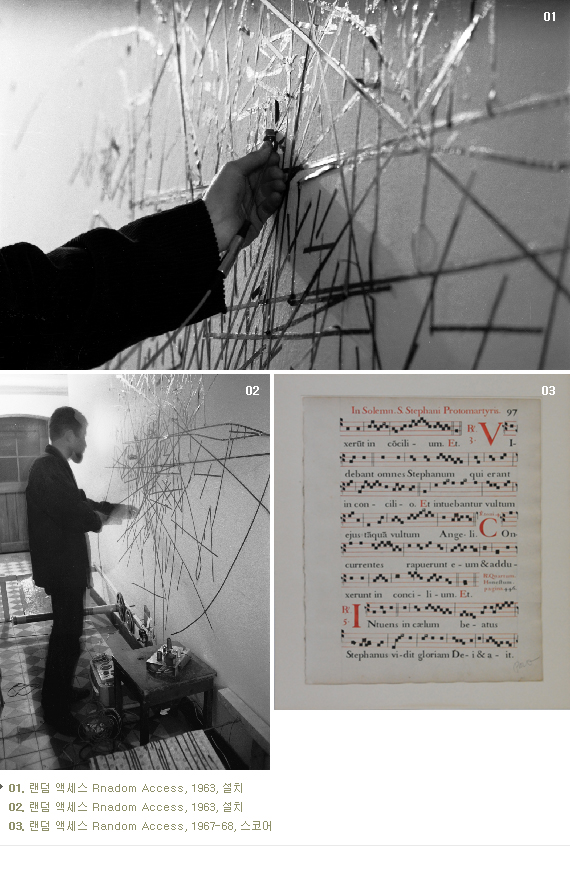 01
02
03
In Solemn. S. Stephani Protomartyris. 97
xerūt in cōcili - um. Et. V I-
debant omnes Stephanum qui erant
in con - cili - o. Et intuebantur vultum
ejus tāquā vultum Ange - li. C On-
currentes rapuerunt e - um & addu -
xerunt in conci - li - um. Et.
I Ntuens in cælum be - atus
Stephanus vi - dit gloriam De - i & a - it.
01. 랜덤 액세스 Rnadom Access, 1963, 설치
02. 랜덤 액세스 Rnadom Access, 1963, 설치
03. 랜덤 액세스 Random Access, 1967-68, 스코어